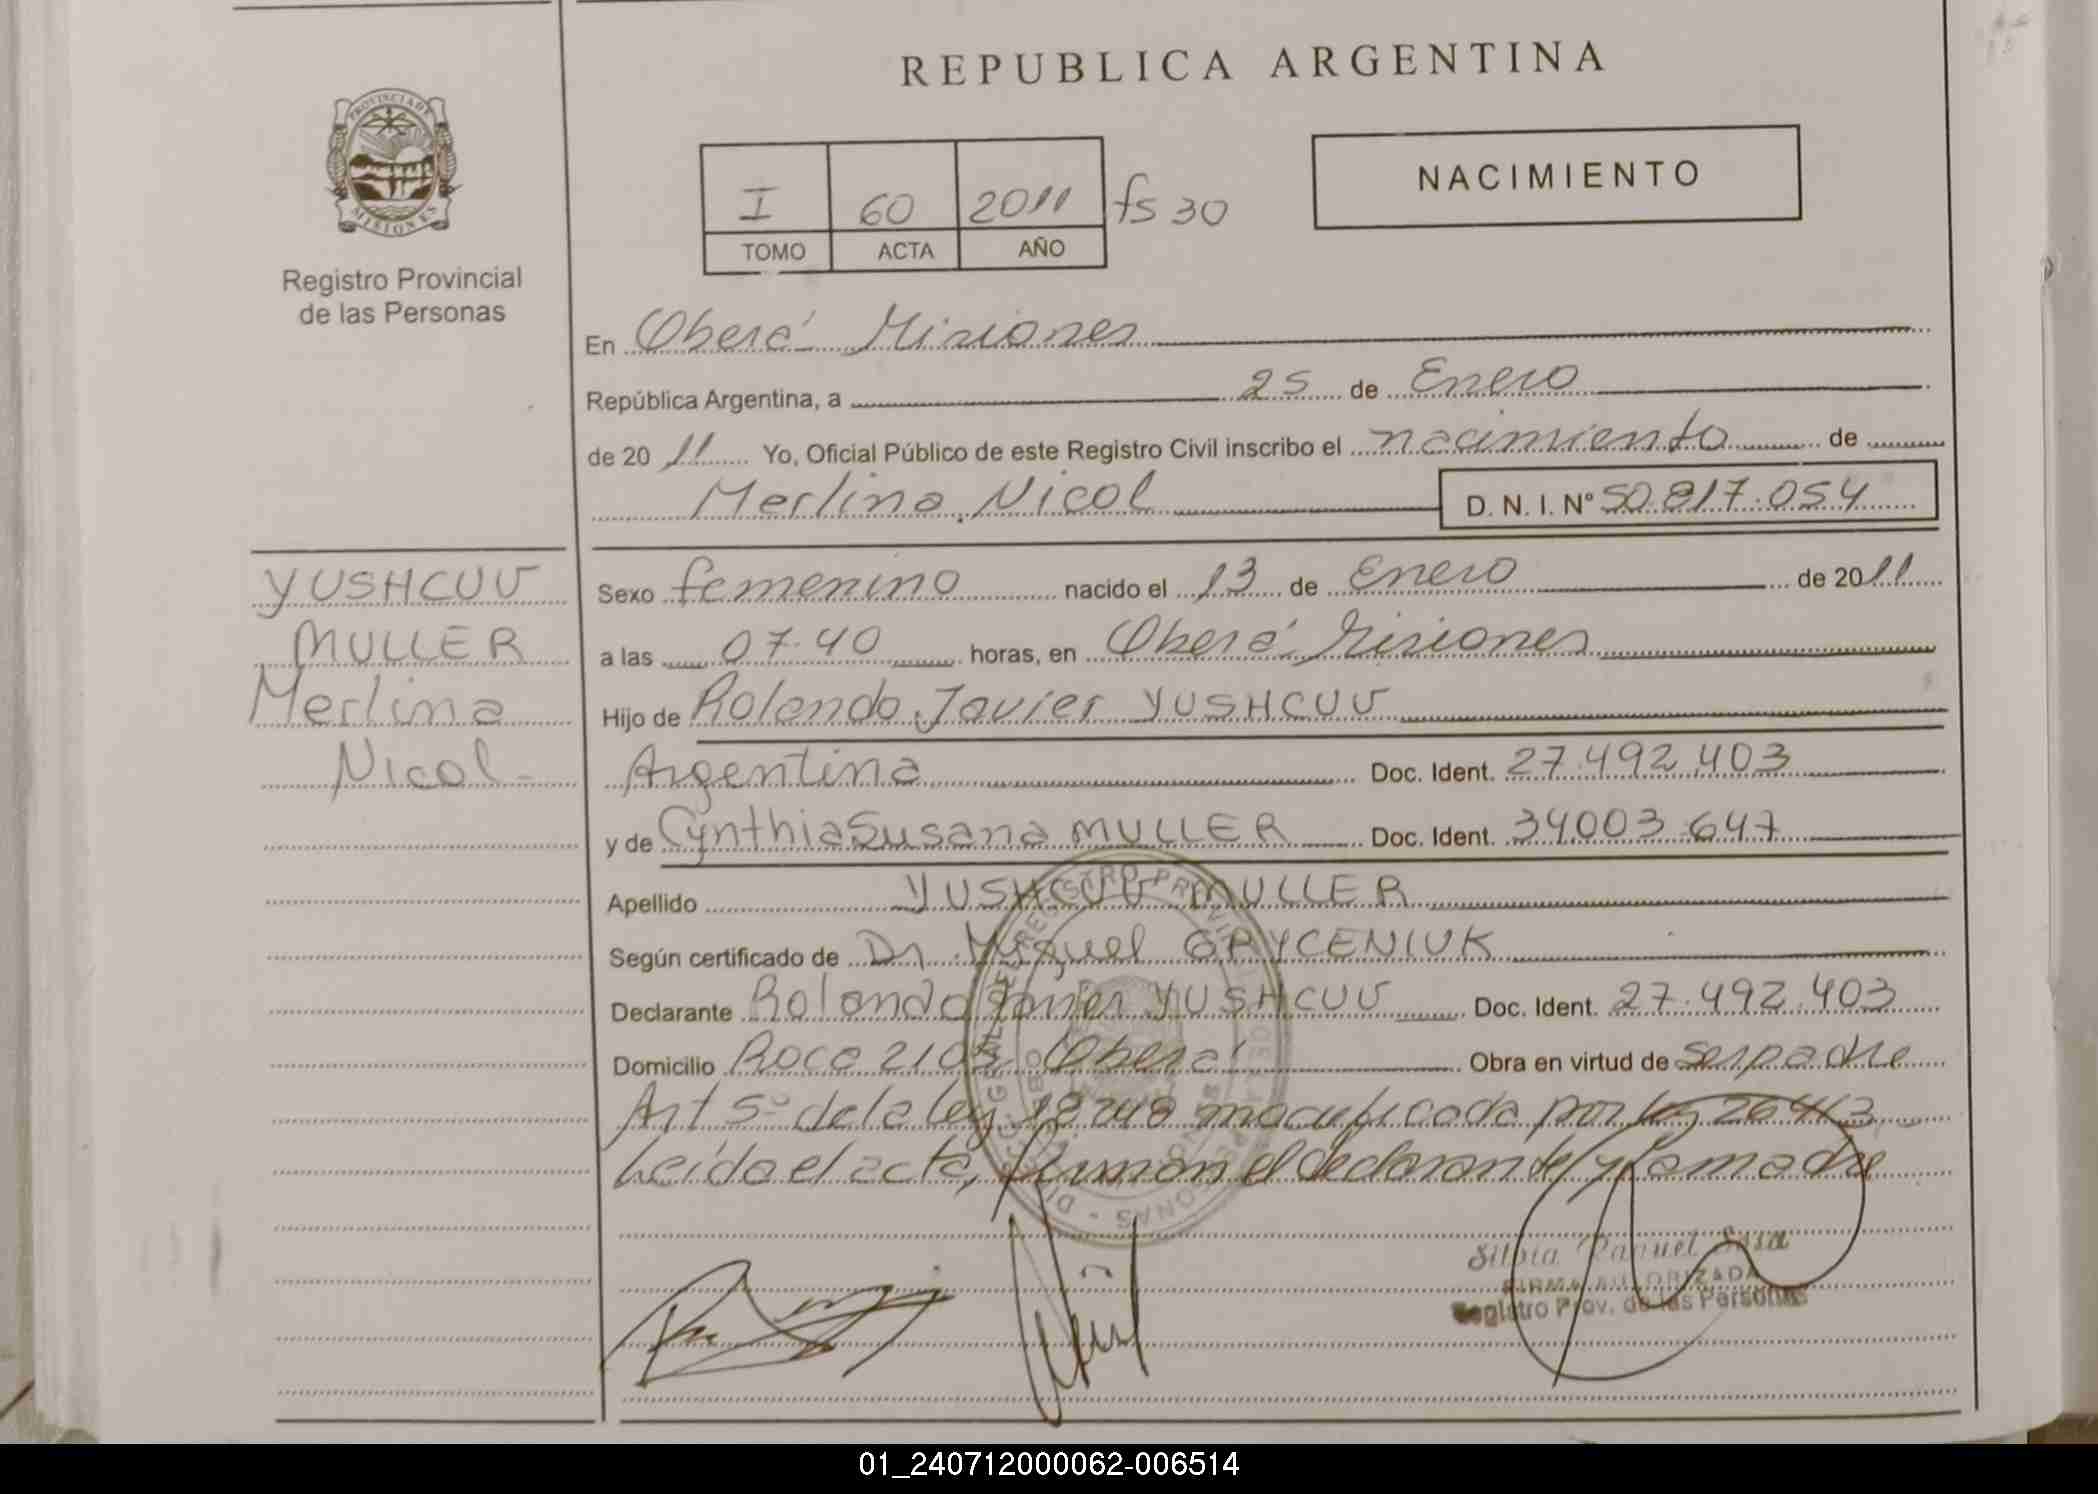 REPUBLICA ARGENTINA
PROVINCIA DE
MISIONES
Registro Provincial
de las Personas
I 60 2011 fs 30
TOMO ACTA AÑO
NACIMIENTO
En Oberá Misiones
República Argentina, a 25 de Enero
de 2011 Yo, Oficial Público de este Registro Civil inscribo el nacimiento de
Merlina Nicol D. N. I. Nº 50.817.054
YUSHCUU
MULLER
Merlina
Nicol-
Sexo femenino nacido el 13 de Enero de 2011
a las 07.40 horas, en Oberá Misiones
Hijo de Rolando Javier YUSHCUU
Argentina Doc. Ident. 27.492.403
y de Cynthia Susana MULLER Doc. Ident. 34003.647
Apellido YUSHCUU MULLER
Según certificado de Dr. Miguel GRYCENIUK
Declarante Rolando Javier YUSHCUU Doc. Ident. 27.492.403
Domicilio Roca 210 Oberá Obra en virtud de ser padre
Art 5º de la ley 18248 modificada por ley 26413
Leída el acta, firman el declarante y la madre
Silvia Raquel Sosa
FIRMA AUTORIZADA
Registro Prov. de las Personas
01_240712000062-006514